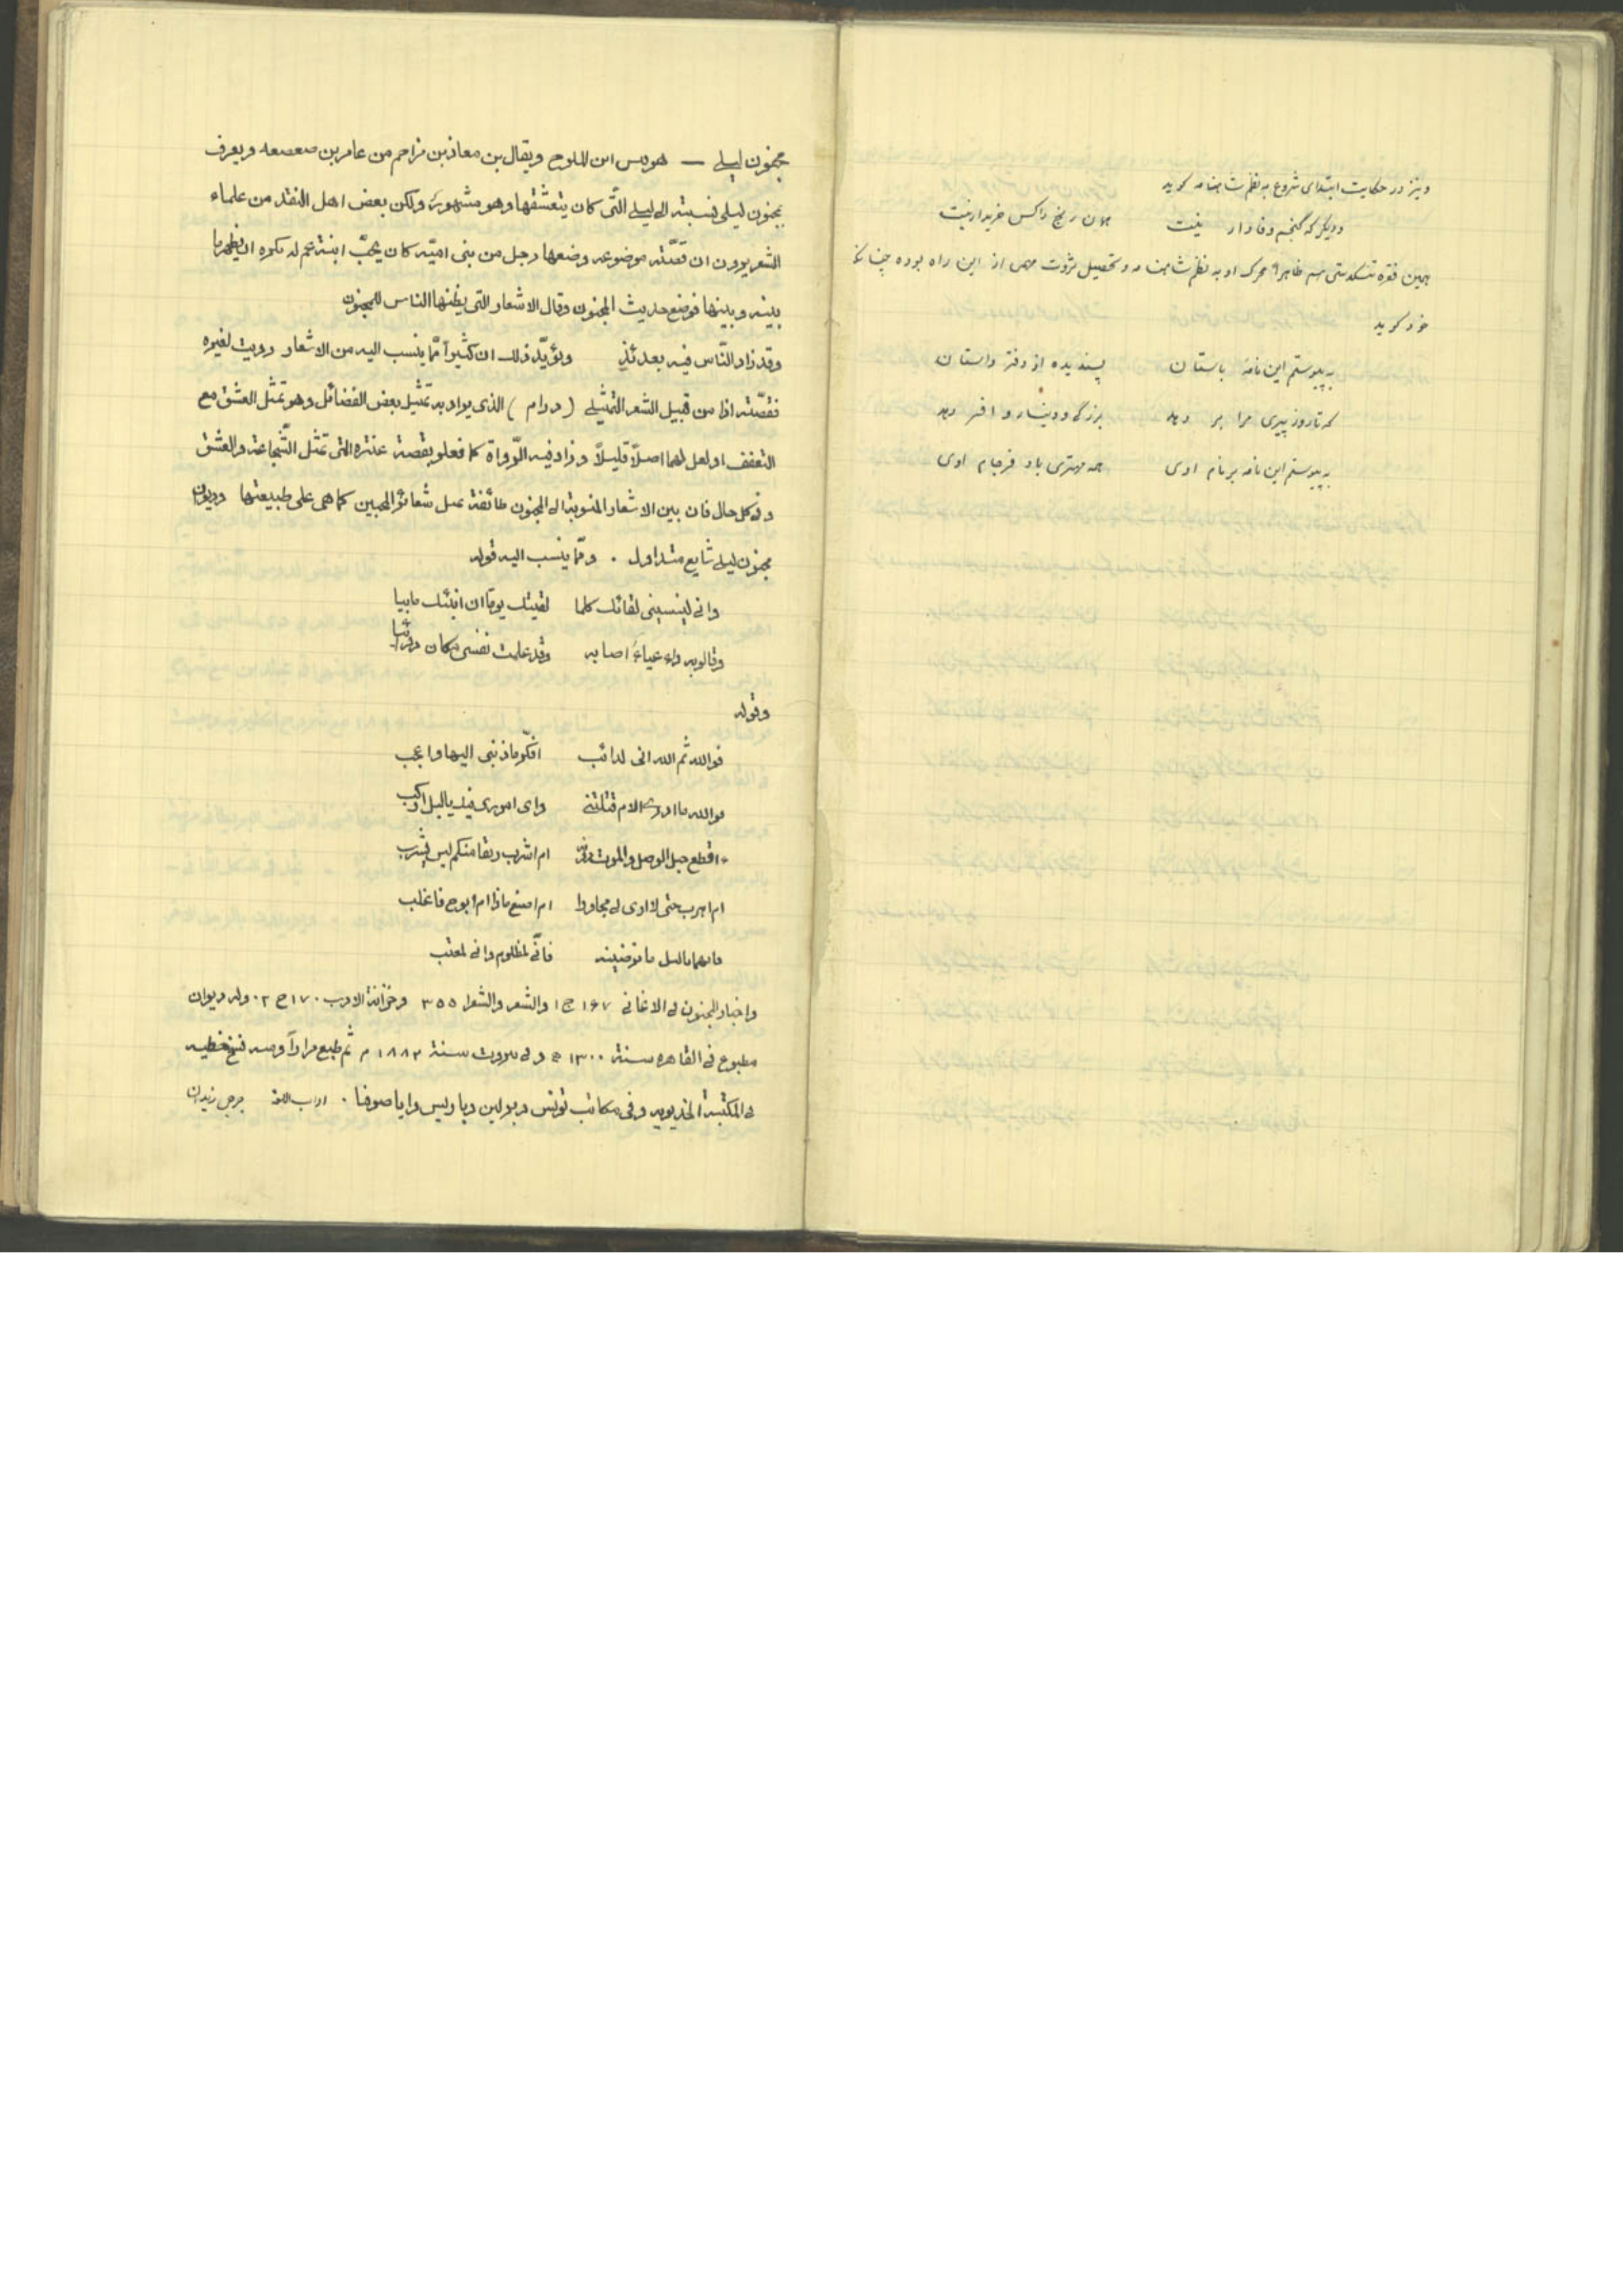 و نیز در حکایت ابتدای شروع به نظم شاهنامه گوید
و دیگر که گنجم وفادار نیست همان رنج را کس خریدار نیست
همین فقره تنگدستی هم ظاهراً محرک او به نظم شاهنامه و تحصیل ثروت هم از این راه بوده چنانکه
خود گوید
به پیوستم این نامهٔ باستان پسندیده از دفتر راستان
که تا روز پیری مرا بر دهد بزرگی و دینار و افسر دهد
به پیوستم این نامه بر نام اوی همه مهتری باد فرجام اوی
مجنون لیلی — هو قیس ابن الملوح ویقال بن معاذ بن مزاحم من عامر بن صعصعه ویعرف
بمجنون لیلی نسبته الی لیلی التّی کان یتعشّقها وهو مشهور، ولکن بعض اهل النقد من علماء
الشعر یرون ان قصّته موضوعه وضعها رجل من بنی امیّه کان یحبّ ابنة عم له یکره ان یظهر ما
بینه و بینها فوضع حدیث المجنون وقال الاشعار التی یظنها الناس للمجنون
وقد زاد النّاس فیه بعدئذٍ ویؤیّد ذلک ان کثیراً ممّا ینسب الیه من الاشعار رویت لغیره
فقصّته اذا من قبیل الشعر التمثیلی (درام) الذی یراد به تمثیل بعض الفضائل وهو تمثل العشق مع
التعفف او لعل لهما اصلاً قلیلاً و زاد فیه الرّواة کما فعلو بقصة عنتره التی تمثل الشّجاعة والعشق
وفی کل حال فان بین الاشعار المنسوبة الی المجنون طائفة تمثل شعائر المحبین کما هی علی طبیعتها ودیوان
مجنون لیلی شایع متداول . وممّا ینسب الیه قوله
وانی لینسینی لقائک کلما لقیتک یوماً ان ابثک ما بیا
وقالو به داء عیاء اصابه وقد علمت نفسی مکان دوائیا
وقوله
فوالله ثم الله انی لدائب افکّر ما ذنبی الیها واعجب
فوالله ما ادری علام قتلتنی وای اموری فیک یا لیل ارکب
ءاقطع حبل الوصل والموت دونه ام اشرب رنقا منکم لیس یشرب
ام اهرب حتی لا اری لی مجاورا ام اصنع ماذا ام ابوح فاغلب
فایهما یا لیل ما ترضینه فانّی لمظلوم وانی لمعتب
واخبار المجنون فی الاغانی ۱۶۷ ج ۱ والشعر والشعرا ۳۵۵ وخزانة الادب ۱۷۰ ج ۲ . وله دیوان
مطبوع فی القاهره سنة ۱۳۰۰ ه وفی بیروت سنة ۱۸۸۲ م ثم طبع مراراً ومنه نسخ خطیه
فی المکتبة الخدیویه وفی مکاتب تونس وبرلین وپاریس وایا صوفیا . اداب اللغة جرجی زیدان